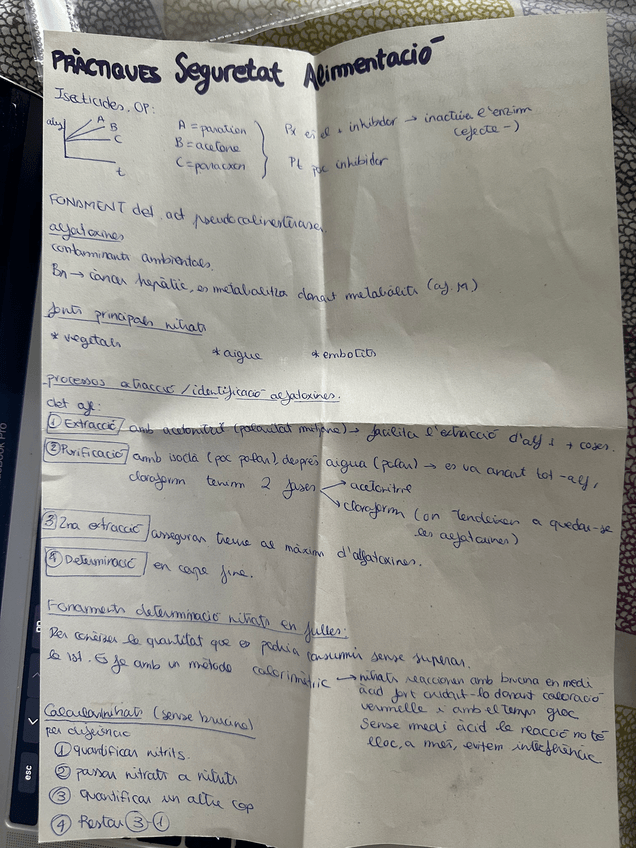 PRÀCTIQUES Seguretat Alimentació
Isecticides. OP:
abs A B C t
A = paration
B = acetone
C = paraoxon
Px és el + inhibidor → inactiva l'enzim
(efecte -)
Pt poc inhibidor
FONAMENT del act pseudocolinesterasa,
aflatoxines
contaminants ambientals.
Bn → càncer hepàtic, es metabolitza donant metabolits (af. M)
fonts principals nitrats
* vegetals * aigue * embotits
processos extracció / identificació aflatoxines.
det afl:
① Extracció amb acetonitril (polaritat mitjana) → facilita l'extracció d'afl i + coses.
② Purificació amb isoctà (poc polar), després aigua (polar) → es va anant tot -afl,
cloraform tenim 2 fases → acetonitril
→ cloraform (on tendeixen a quedar-se
les aflatoxines)
③ 2na extracció assegurar treure al màxim d'aflatoxines.
④ Determinació en cape fine.
Fonaments determinació nitrats en fulles:
Per conèixer la quantitat que es podria consumir sense superar
la IST. Es fa amb un mètode colorimètric → nitrats reaccionen amb brucina en medi
àcid fort oxidant-lo donant coloració
vermelle i amb el temps groc
sense medi àcid la reacció no té
lloc, a més, evitem interferència
Calcular nitrats (sense brucina)
per diferència
① quantificar nitrits.
② passar nitrats a nitrits
③ quantificar un altre cop
④ Restar ③-①
esc